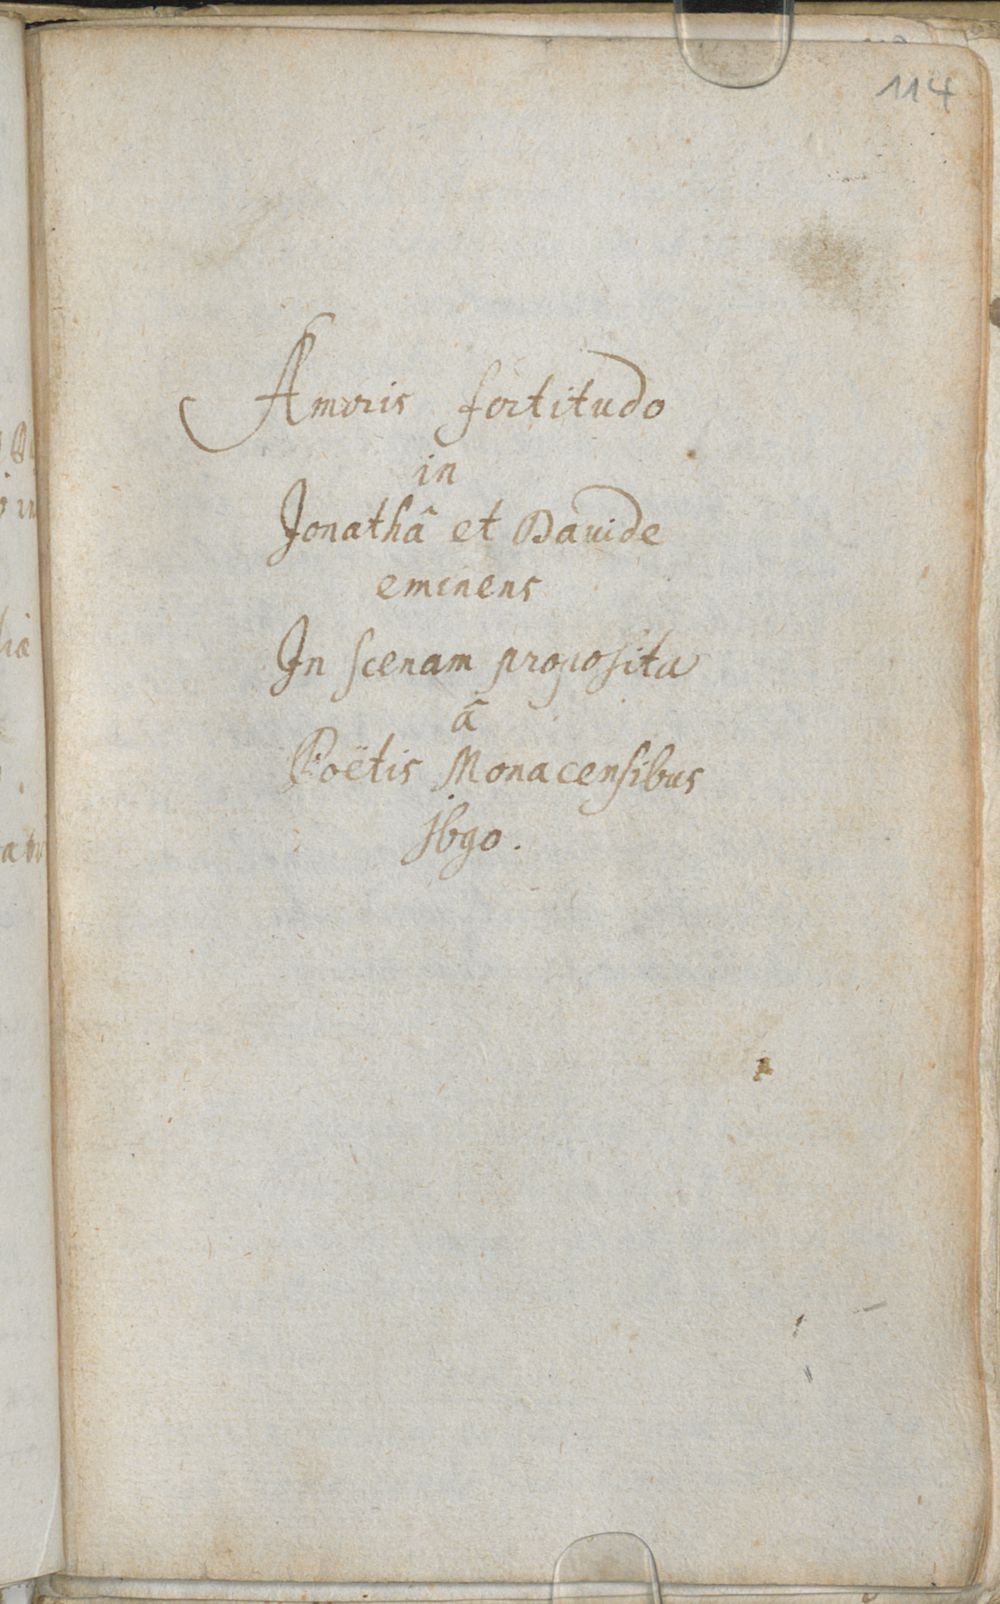 114
Amoris fortitudo
in
Jonathâ et Dauide
eminens
In scenam proposita
â
Poëtis Monacensibus
1690.